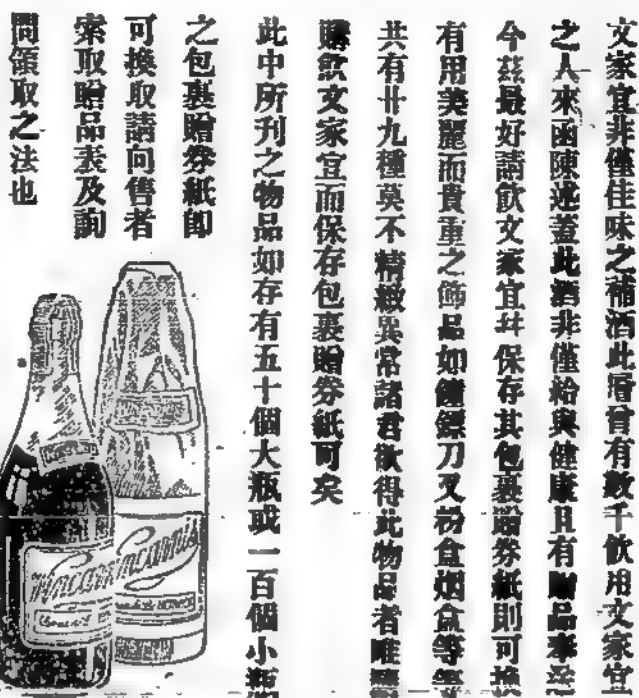 文家宜非僅佳味之補酒此層曾有數千飲用文家宜
之人來函陳述蓋此酒非僅給與健康且有贈品奉送
今茲最好請飲文家宜幷保存其包裹贈券紙則可換
有用美麗而貴重之飾品如鐘鏢刀叉粉盒烟盒等等
共有廿九種莫不精緻異常諸君欲得此物品者唯
購飲文家宜而保存包裹贈券紙可矣
此中所刊之物品如存有五十個大瓶或一百個小瓶
之包裹贈券紙卽
可換取請向售者
索取贈品表及詢
問領取之法也
Wincarnis